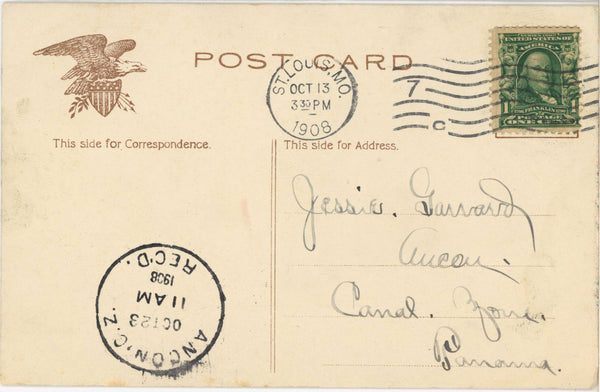 POST CARD
ST. LOUIS, MO.
OCT 13
3 30 PM
1908
7
C
UNITED STATES OF
AMERICA
1
FRANKLIN
POSTAGE
ONE CENT
This side for Correspondence.
This side for Address.
Jessie. Garrard
Ancon.
Canal. Zone.
Panama.
ANCON, C.Z.
OCT 23
11 AM
1908
REC'D.